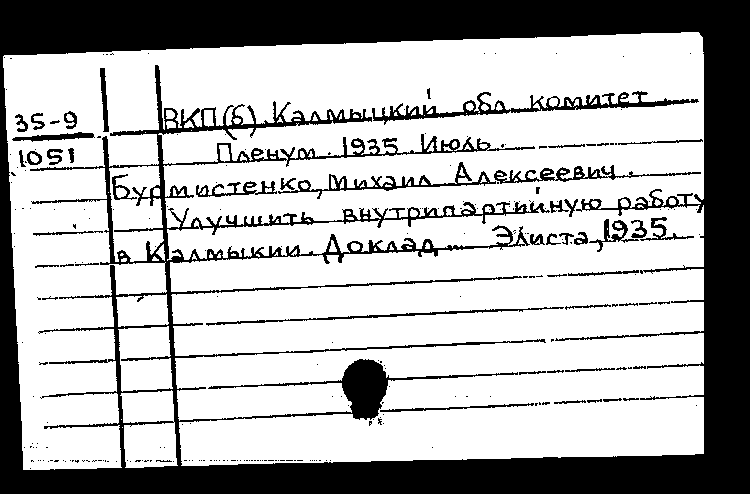 35-9
1051
ВКП(б). Калмыцкий обл. комитет.
Пленум. 1935. Июль.
Бурмистенко, Михаил Алексеевич.
Улучшить внутрипартийную работу
в Калмыкии. Доклад... Элиста, 1935.